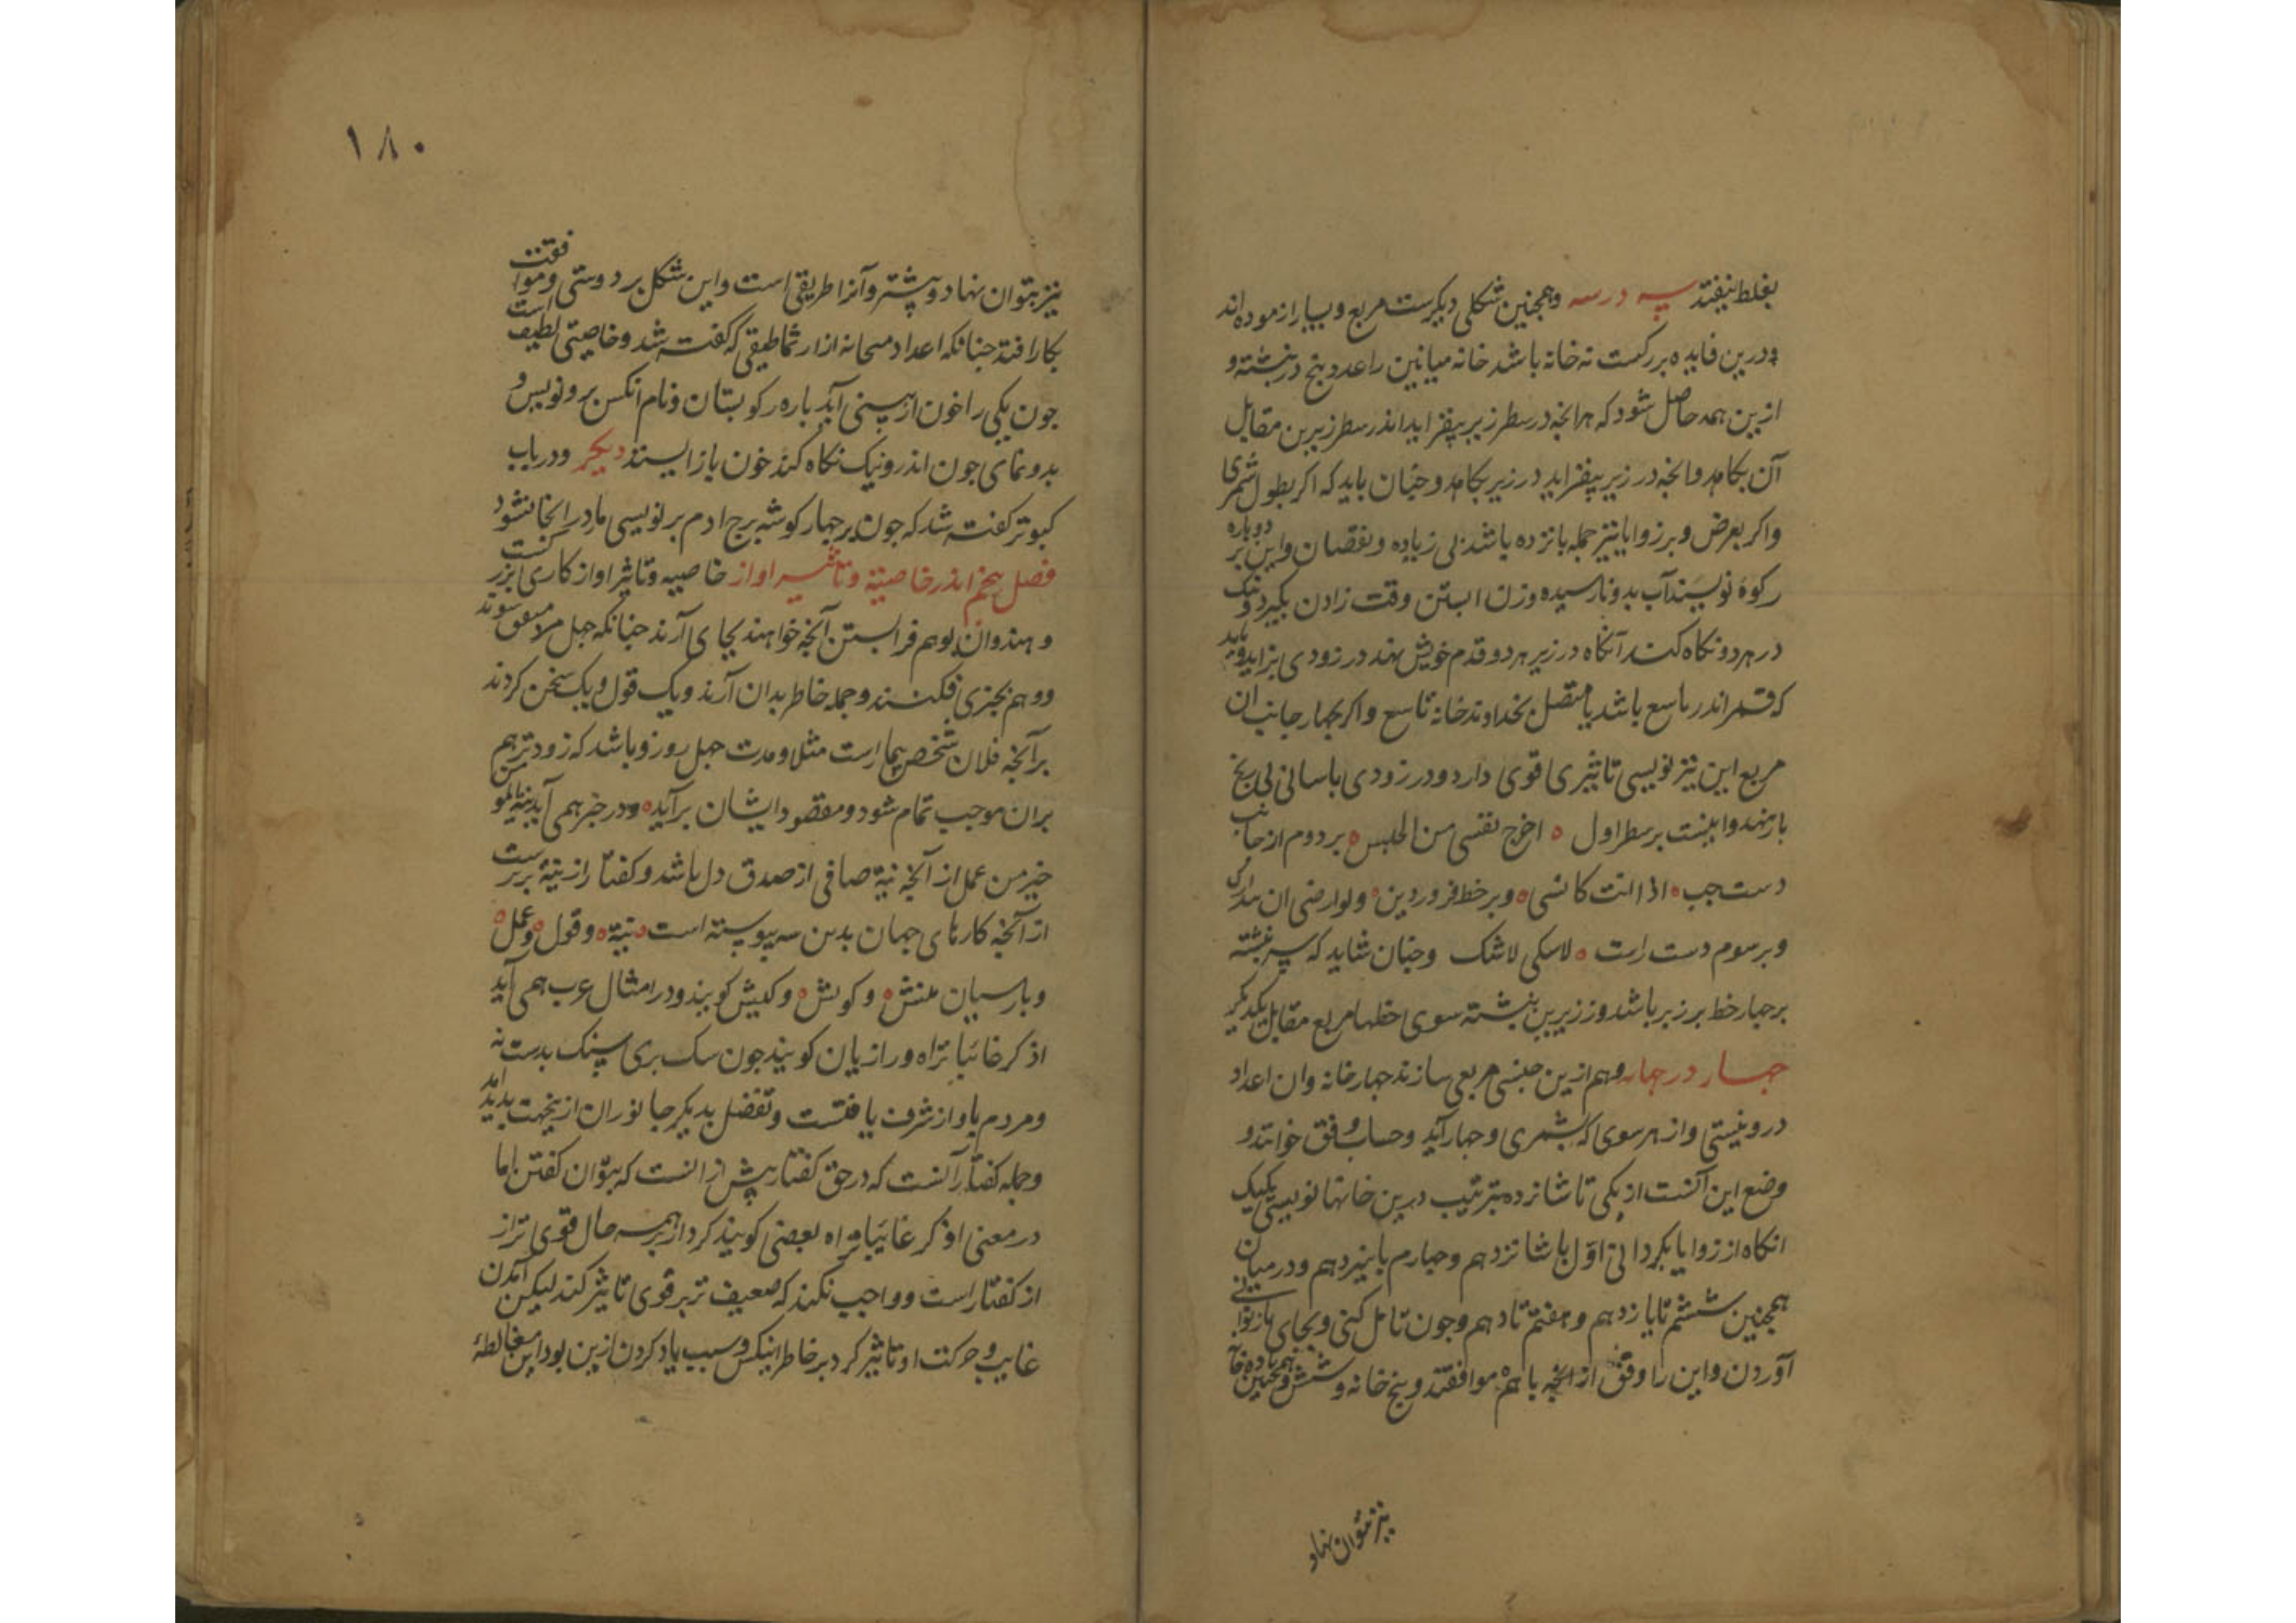 بغلط نیفتد سه در سه وهمچنین شکلی دیکرست مربع وبسیار ازموده اند
ودرین فایده بزرکست نه خانه باشد خانه میانین را عدد پنج در نبشته و
ازین همه حاصل شود که هرانچه در سطر زیر بیفزاید اندر سطر زیرین مقابل
آن بکاهد وانچه در زیر بیفزاید در زیر بکاهد وچنان باید که اکر بطول شمری
واکر بعرض وبر زوایا نیز جمله پانزده باشد بی زیاده ونقصان واین بر دوپاره
رکوه نویسند آب بدو نارسیده وزن ابستن وقت زادن بکیرد ونیک
در هر دو نکاه کند آنکاه در زیر هر دو قدم خویش نهد در زودی بزاید وباید
که قمر اندر تاسع باشد یا متصل بخداوند خانه تاسع واکر بچهار جانب ان
مربع این نیز نویسی تاثیری قوی دارد ودر زودی باسانی بی رنج
بارنهد واینست بر سطر اول اخرج نفسی من الحبس بر دوم از جانب
دست چب اذا انت کانسی وبر خط فرودین ولوارضی ان
وبر سوم دست راست لاسکی لاشک وچنان شاید که سر نبشته
بر چهار خط بر زبر باشد وز زیرین نبشته سوی خطها مربع مقابل یکدیکر
چهار در چهار وهم ازین جنس مربعی سازند چهار خانه وان اعداد
درو نیستی واز هر سوی که بشمری وچهار آید وحساب وفق خوانند و
وضع این آنست از یکی تا شانزده بترتیب درین خانها نویسی یکیک
انکاه از زوایا بکردانی اول با شانزدهم وچهارم با سیزدهم ودر میان
همچنین ششم تا یازدهم وهفتم تا دهم وچون تامل کنی وبجای باز توانی
آوردن واین را وفق از انچه باهم موافقند وپنج خانه وشش وهمچنین تا ده خانه
نیز بتوان نهاد
۱۸۰
نیز بتوان نهاد وبیشتر وآنرا طریقی است واین شکل بر دوستی وموافقت
بکار افتد چنانکه اعداد متحابه از ارثماطیقی که کفته شد وخاصیتی لطیف است
چون یکی را خون از بینی آید باره رکو بستان ونام انکس برو نویس و
بدو نمای چون اندرو نیک نکاه کند خون باز ایستد دیکر ودر باب
کبوتر کفته شد که چون بر چهار کوشه برج ادم بر نویسی مار در انجا نشود
فصل پنجم اندر خاصیة وتاثیر اواز خاصیه وتاثیر اواز کاری بزرکست
وهندوان بوهم فرا بستن آنچه خواهند بجای آرند چنانکه چهل متفق شوند
ووهم بچیزی فکنند وجمله خاطر بدان آرند ویک قول ویک سخن کردند
برآنچه فلان شخص بیمار است مثلا ومدت چهل روز وباشد که زودتر هم
بران موجب تمام شود ومقصود ایشان برآید ودر خبر همی آید نیة المومن
خیر من عمل از آنچه نیة صافی از صدق دل باشد وکفتار از نیة برترست
از آنچه کارهای جهان بدین سه پیوسته است نیة وقول وعمل
وبارسیان منش وکوش وکنش کویند ودر امثال عرب همی آید
اذکر غائبا تراه ورازیان کویند چون سک بری سنک بدست نه
ومردم باواز شرف یافتست وتفضل بدیکر جانوران ازینجهت پدید امد
وجمله کفتار آنست که در حق کفتار پیش از انست که بتوان کفتن اما
در معنی اذکر غایبا تراه بعضی کویند کردار بهمه حال قوی تر از
از کفتار است وواجب نکند که ضعیف تر بر قوی تاثیر کند لیکن آمدن
غایب وحرکت او تاثیر کرد بر خاطر اینکس وسبب یاد کردن ازین بود این مغالطه